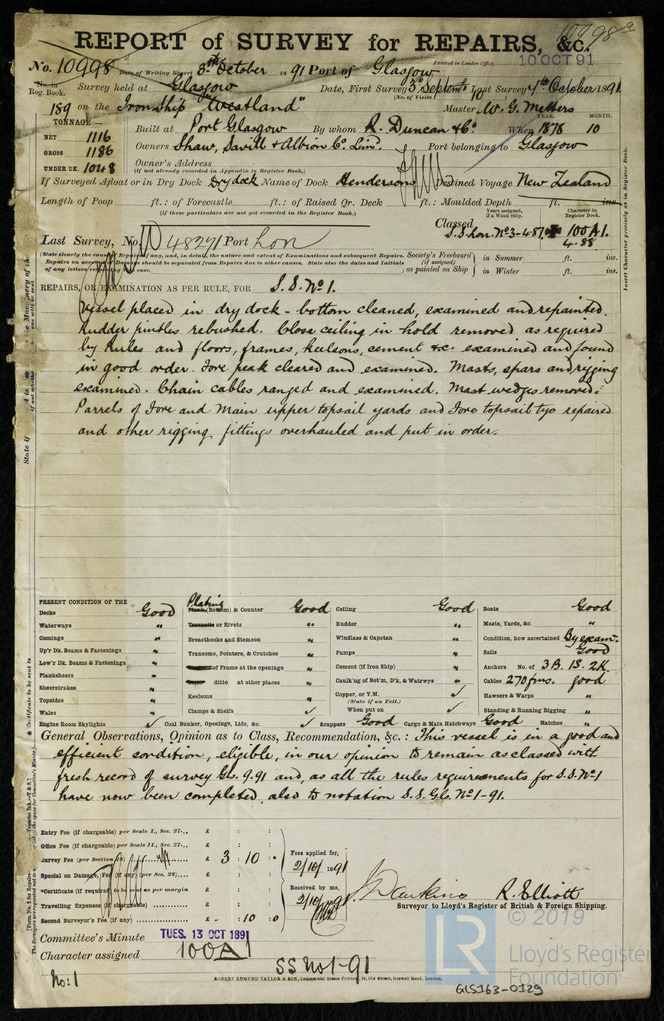 10998a
REPORT of SURVEY for REPAIRS, &c.
No. 10998 Date of Writing Report 8th October 1891 Port of Glasgow
Received in London Office, 10 OCT 91
No. in Reg. Book. Survey held at Glasgow Date, First Survey 3rd Septemr Last Survey 7th October 1891
(No. of Visits) 10
189 on the Iron Ship "Westland" Master W. G. Metters
TONNAGE:— YEAR. MONTH.
NET 1116 Built at Port Glasgow By whom R. Duncan & Co. When 1878 10
GROSS 1186 Owners Shaw, Savill & Albion Co. Lim'd. Port belonging to Glasgow
UNDER DK. 1048 Owner's Address
(If not already recorded in Appendix to Register Book.)
If Surveyed Afloat or in Dry Dock Dry dock Name of Dock Hendersons Destined Voyage New Zealand
Length of Poop ft.: of Forecastle ft.: of Raised Qr. Deck ft.: Moulded Depth ft. ins.
(If these particulars are not yet recorded in the Register Book.)
Years assigned, if a Wood Ship. Character in Register Book.
Classed S.S. Lon. No. 3-4.87 100A1.
4.88
Last Survey, No. 48291 Port Lon
Society's Freeboard (if assigned) as painted on Ship in Summer ft. ins.
in Winter ft. ins.
REPAIRS, OR EXAMINATION AS PER RULE, FOR S.S. No. 1.
Vessel placed in dry dock - bottom cleaned, examined and repainted.
Rudder pintles rebushed. Close ceiling in hold removed as required
by Rules and floors, frames, keelsons, cement &c. examined and found
in good order. Fore peak cleared and examined. Masts, spars and rigging
examined. Chain cables ranged and examined. Mast wedges removed.
Parrels of Fore and Main upper topsail yards and Fore topsail tye repaired
and other rigging fittings overhauled and put in order.
PRESENT CONDITION OF THE
Decks Good
Waterways "
Comings "
Up'r Dk. Beams & Fastenings "
Low'r Dk. Beams & Fastenings "
Planksheers "
Sheerstrakes "
Topsides "
Wales "
Engine Room Skylights ✓
Plating (Bottom) & Counter Good
Treenails or Rivets "
Breasthooks and Stemson "
Transoms, Pointers, & Crutches "
of Frame at the openings "
ditto at other places "
Keelsons "
Clamps & Shelfs ✓
Coal Bunker, Openings, Lids, &c. ✓
Ceiling Good
Rudder "
Windlass & Capstan "
Pumps "
Cement (if Iron Ship) "
Caulk'g of Bot'm, D'k, & Waterw'ys "
Copper, or Y.M. ✓
(State if on Felt.)
When put on ✓
Scuppers Good Cargo & Main Hatchways Good
Boats Good
Masts, Yards, &c. "
Condition, how ascertained By exam.
Sails Good
Anchors No. of 3B. 1S. 2K
Cables 270 fms. good
Hawsers & Warps "
Standing & Running Rigging "
Hatches "
General Observations, Opinion as to Class, Recommendation, &c.: This vessel is in a good and
efficient condition, eligible, in our opinion to remain as classed with
fresh record of survey Gls. 9.91 and, as all the rules requirements for S.S. No 1
have now been completed, also to notation S.S. Gls. No 1-91.
Entry Fee (if chargeable) per Scale I., Sec. 27... £ : :
Office Fee (if chargeable) per Scale II., Sec. 27... £ : :
Survey Fee (per Section 28) £ 3 : 10 :
Special on Damage, Fee (if any) (per Sec. 28) £ : :
Certificate (if required) to be sent as per margin £ : :
Travelling Expenses (if chargeable) £ : :
Second Surveyor's Fee (if any) £ - : 10 : 0
Fees applied for, 2/10/1891
Received by me, 2/10/1891
J. Dawkins R. Elliott
Surveyor to Lloyd's Register of British & Foreign Shipping.
Committee's Minute TUES. 13 OCT 1891
Character assigned 100A1
SS No 1-91
No: 1
ROBERT EDMUND TAYLOR & SON, Commercial Steam Printers, 19, Old Street, Goswell Road, London.
GLS163-0129
LR © 2019
Lloyd's Register
Foundation